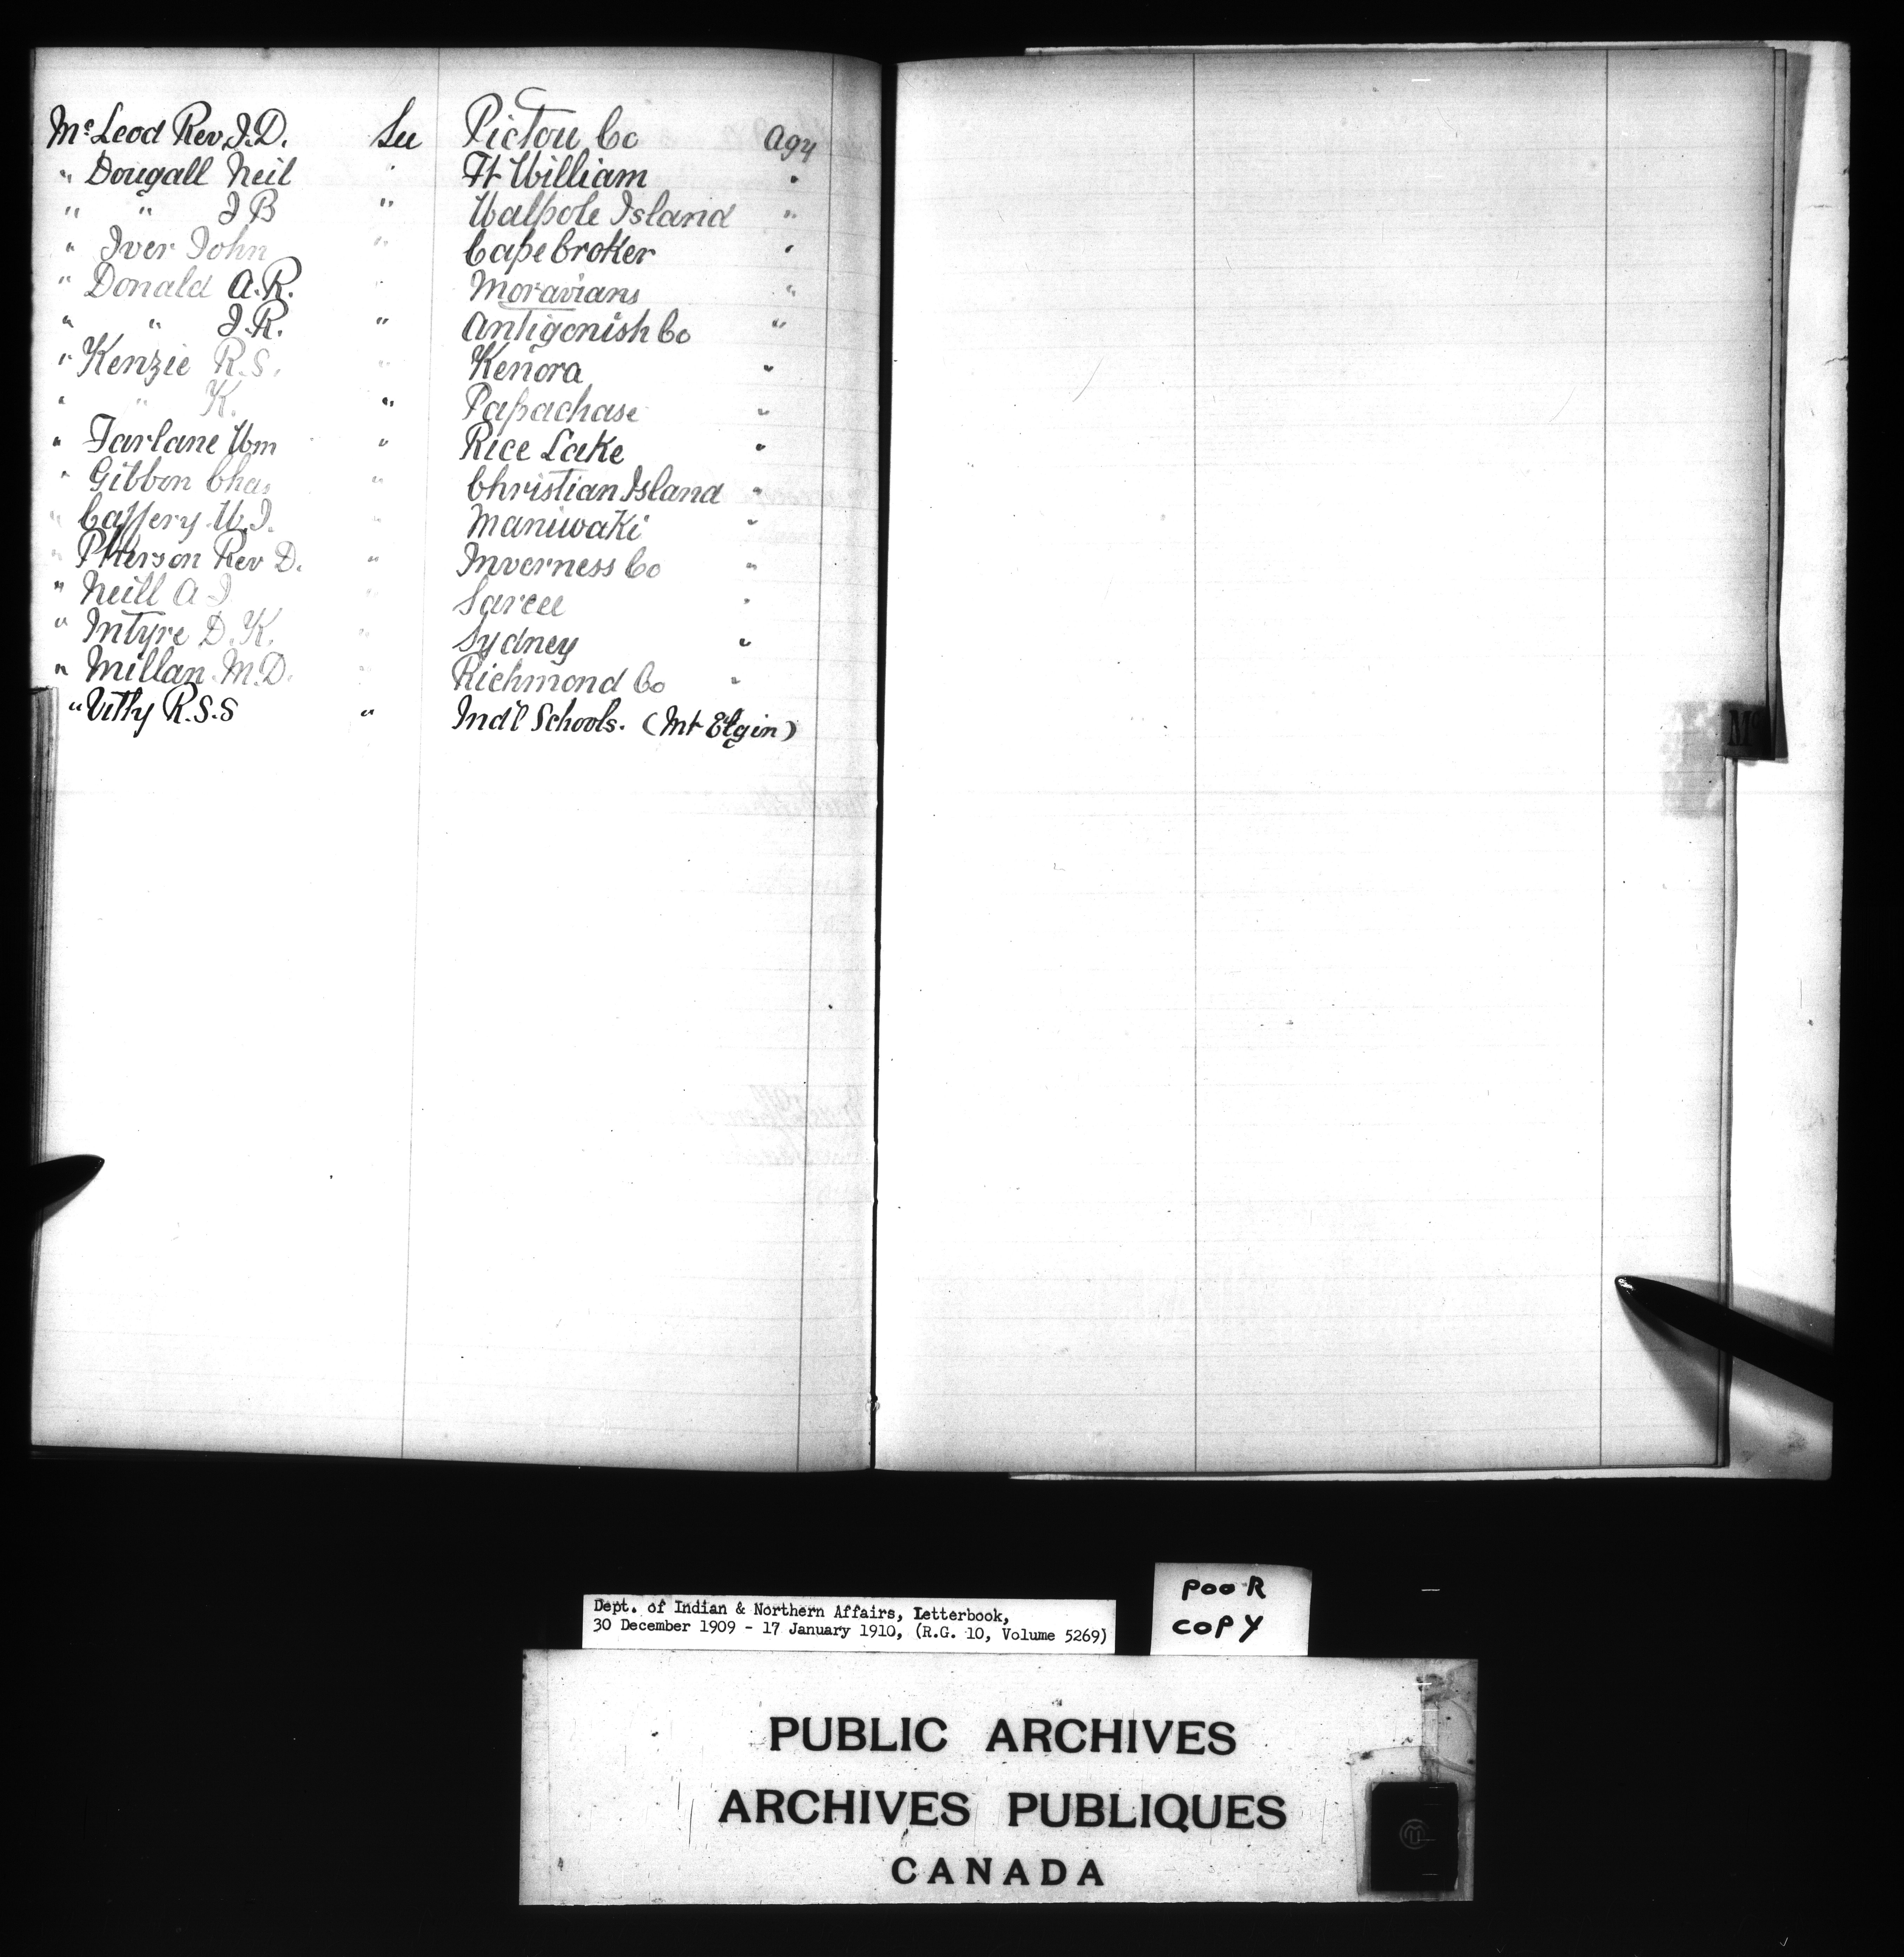 Mc Leod Rev. J. D. See Pictou Co Agy
" Dougall Neil " Ft William "
" " J B " Walpole Island "
" Iver John " Cape Croker "
" Donald A. R. " Moravians "
" " J. R. " Antigonish Co "
" Kenzie R. S. " Kenora "
" " K. " Papachase "
" Farlane Wm " Rice Lake "
" Gibbon Chas " Christian Island "
" Caffery W. J. " Maniwaki "
" Pherson Rev D. " Inverness Co "
" Neill A J " Sarcee "
" Intyre D. K. " Sydney "
" Millan M. D. " Richmond Co "
" Vitty R. S. S " Ind'l Schools. (Mt Elgin)
Mc
Dept. of Indian & Northern Affairs, Letterbook,
30 December 1909 - 17 January 1910, (R.G. 10, Volume 5269)
POOR
COPY
PUBLIC ARCHIVES
ARCHIVES PUBLIQUES
CANADA